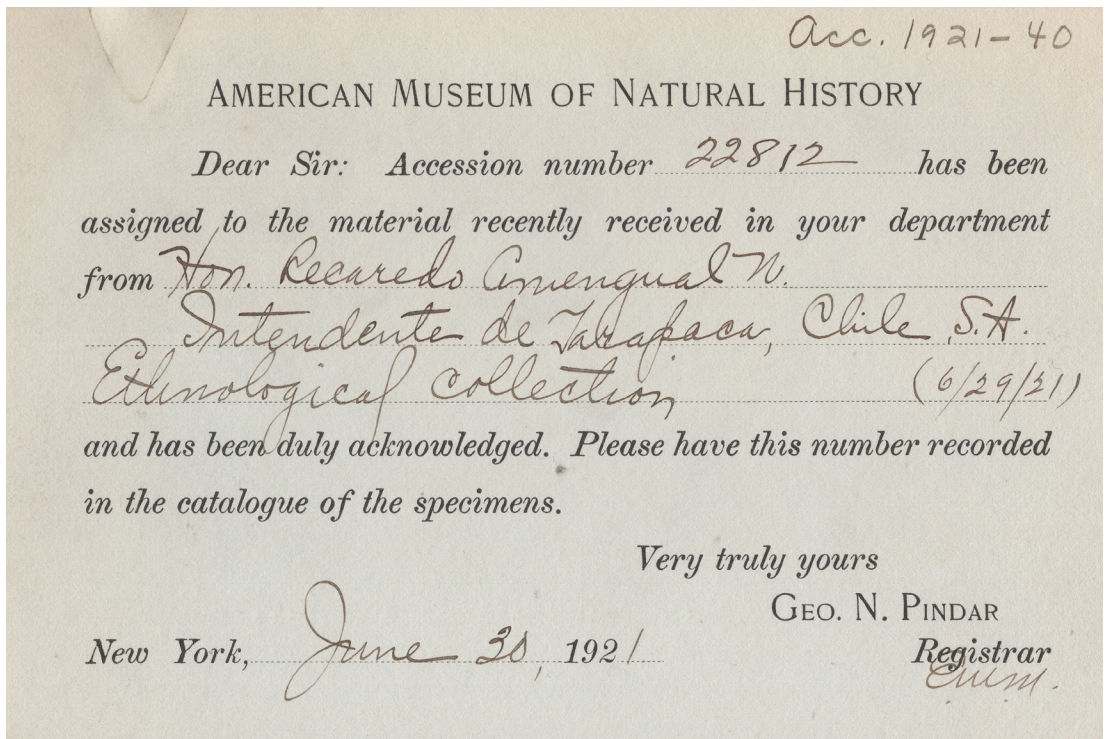 Acc. 1921-40
AMERICAN MUSEUM OF NATURAL HISTORY
Dear Sir: Accession number 22812 has been
assigned to the material recently received in your department
from Hon. Recaredo Amengual N.
Intendente de Tarapaca, Chile, S.A.
Ethnological collection (6/29/21)
and has been duly acknowledged. Please have this number recorded
in the catalogue of the specimens.
Very truly yours
GEO. N. PINDAR
New York, June 30, 1921 Registrar